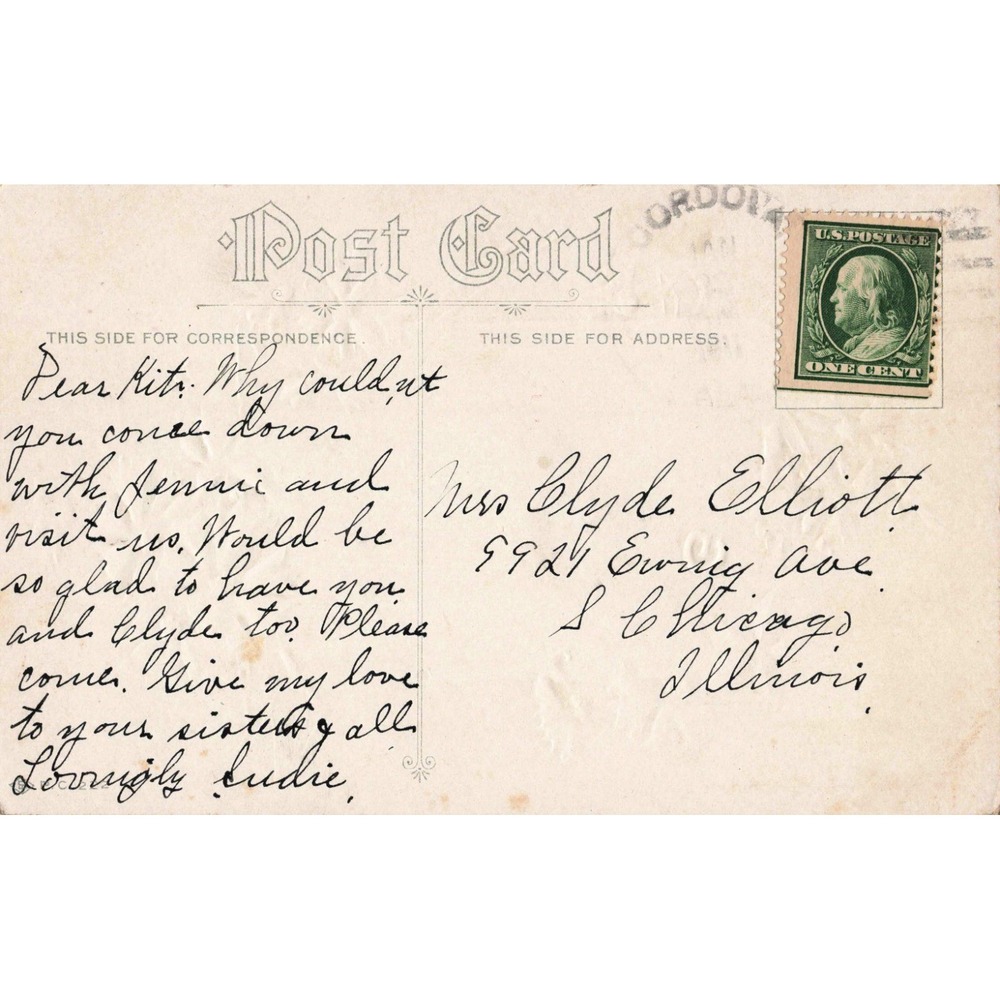 CORDOVA
Post Card
U.S. POSTAGE
ONE CENT
THIS SIDE FOR CORRESPONDENCE.
THIS SIDE FOR ADDRESS.
Dear Kit. Why couldn't
you come down
with Jennie and
visit us. Would be
so glad to have you
and Clyde too. Please
come. Give my love
to your sisters & all
Lovingly Sudie.
Mrs Clyde Elliott
9921 Ewing Ave
S Chicago
Illinois.